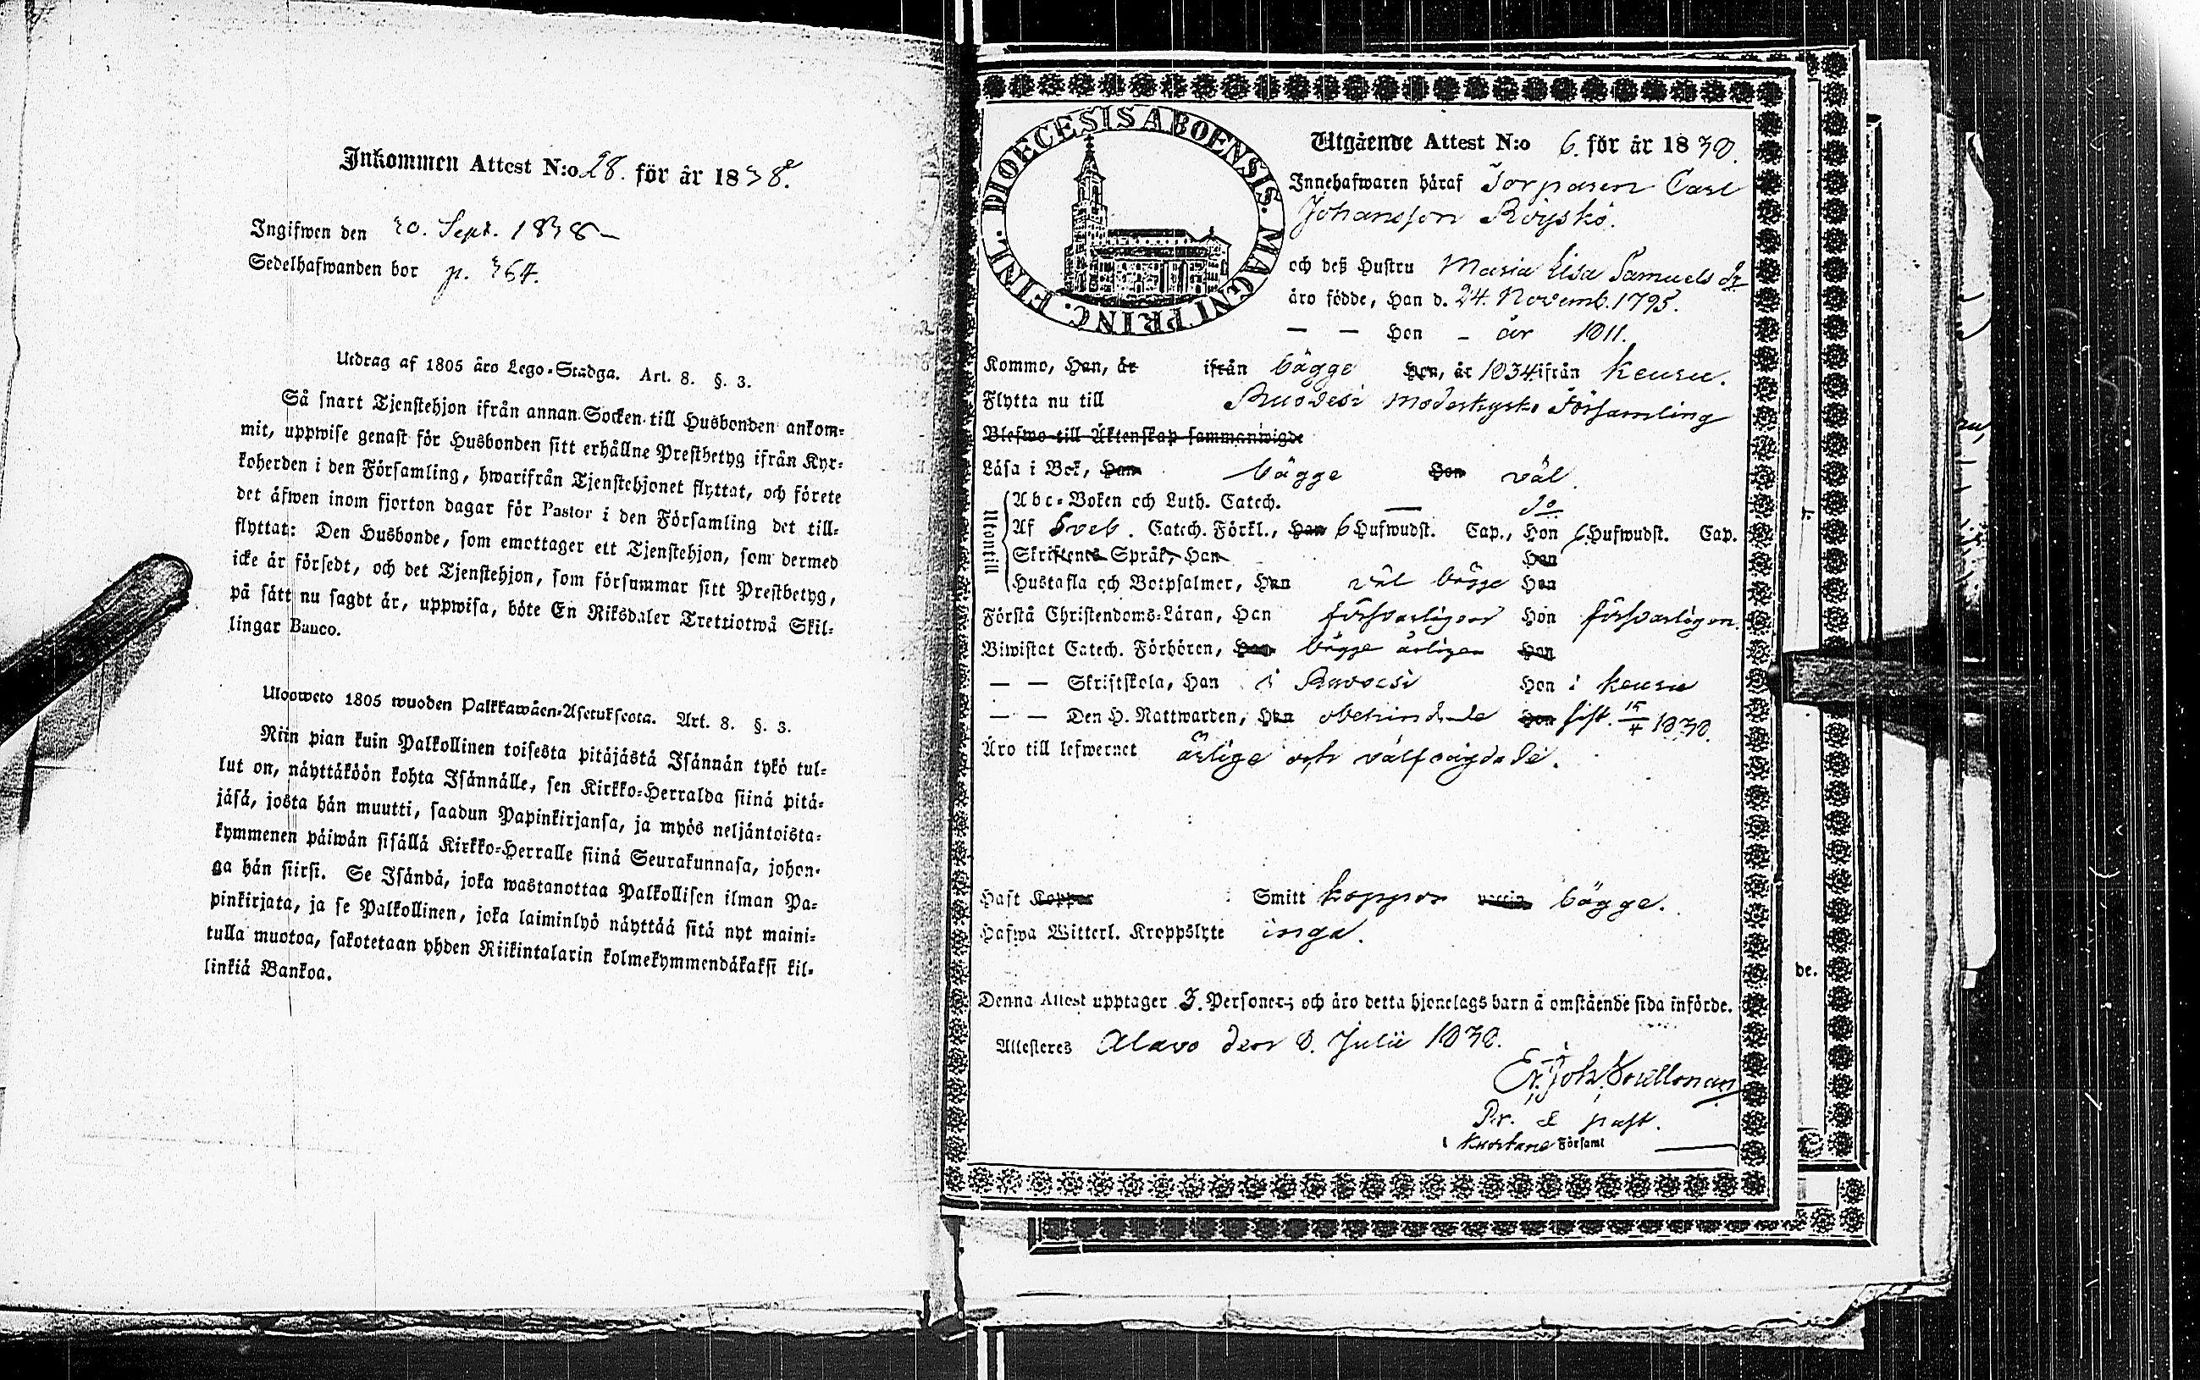 Inkommen Attest N:o 28. för år 1838.
Ingifwen den 30. Sept. 1838
Sedelhafwanden bor p. 364.
Utdrag af 1805 års Lego-Stadga. Art. 8. §. 3.
Så snart Tjenstehjon ifrån annan Socken till Husbonden ankom-
mit, uppwise genast för Husbonden sitt erhållne Prestbetyg ifrån Kyr-
koherden i den Församling, hwarifrån Tjenstehjonet flyttat, och förete
det äfwen inom fjorton dagar för Pastor i den Församling det till-
flyttat: Den Husbonde, som emottager ett Tjenstehjon, som dermed
icke är försedt, och det Tjenstehjon, som försummar sitt Prestbetyg,
på sätt nu sagdt är, uppwisa, böte En Riksdaler Trettiotwå Skil-
lingar Banco.
Ulosweto 1805 wuoden Palkkawäen-Asetuksesta. Art. 8. §. 3.
Niin pian kuin Palkollinen toisesta pitäjästä Isännän tykö tul-
lut on, näyttäköön kohta Isännälle, sen Kirkko-Herralda siinä pitä-
jäsä, josta hän muutti, saadun Papinkirjansa, ja myös neljäntoista-
kymmenen päiwän sisällä Kirkko-Herralle siinä Seurakunnasa, johon-
ga hän siirsi. Se Isändä, joka wastanottaa Palkollisen ilman Pa-
pinkirjata, ja se Palkollinen, joka laiminlyö näyttää sitä nyt maini-
tulla muotoa, sakotetaan yhden Riikintalarin kolmekymmendäkaksi kil-
linkiä Bankoa.
DIOECESIS ABOENSIS. MAGNI PRINC. FINL.
Utgående Attest N:o 6. för år 1838.
Innehafwaren häraf Torparen Carl
Johansson Röyskö.
och deß Hustru Maria Lisa Samuels dr
äro födde, Han d. 24. Novemb. 1795.
— — Hon – år 1811.
Kommo, Han, år ifrån bägge Hon, år 1834 ifrån Keuru.
Flytta nu till Ruovesi Moderkyrko Församling
Blefwo till Äktenskap sammanwigde
Läsa i Bok, Han bägge Hon väl.
Utontill
Abc-Boken och Luth. Catech. — do
Af Sveb. Catech. Förkl., Han 6 Hufwudst. Cap., Hon 6 Hufwudst. Cap.
Skriftenes Språk, Han Hon
Hustafla och Botpsalmer, Han väl bägge Hon
Förstå Christendoms-Läran, Han försvarligen Hon försvarligen.
Biwistat Catech. Förhören, Han bägge årligen Hon
— — Skriftskola, Han i Ruovesi Hon i Keuru
— — Den H. Nattwarden, Han obehindrade Hon sist. 15/4 1838.
Äro till lefwernet ärlige och välfrägdade.
Haft Koppor Smitt koppor bägge.
Hafwa Witterl. Kroppslyte inga.
Denna Attest upptager 3. Personer; och äro detta hjonelags barn å omstående sida införde.
Attesteres Alavo den 8. Julii 1838.
Er. Joh. Snellman
Pr. & past.
i Kuortane Församl
de.